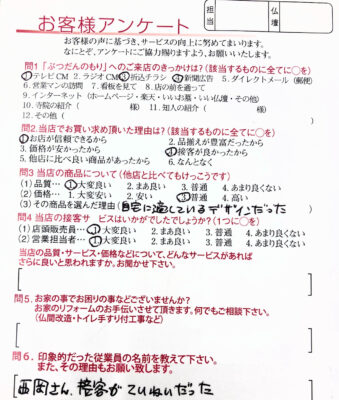 お客様アンケート
担当
仏壇
お客様の声に基づき、サービスの向上に努めてまいります。
なにとぞ、アンケートにご協力賜りますよう、お願いいたします。
問1「ぶつだんのもり」へのご来店のきっかけは?(該当するものに全てに○を)
①テレビCM 2. ラジオCM ③折込チラシ ④新聞広告 5. ダイレクトメール(郵便)
6. 営業マンの訪問 7. 看板を見て 8. 店の前を通って
9. インターネット(ホームページ・楽天・いいお墓・いい仏壇・その他)
10. 寺院の紹介( 様) 11. 知人の紹介( 様)
12. その他( )
問2.当店でお買い求め頂いた理由は?(該当するものに全てに○を)
①お店が信頼できるから 2. 品揃えが豊富だったから
3. 価格が安かったから ④接客が良かったから
5. 他店に比べ良い商品があったから 6. なんとなく
問3 当店の商品について(他店と比べてもけっこうです)
(1) 品質… ①大変良い 2. まあ良い 3. 普通 4. あまり良くない
(2) 価格… 1. 大変安い 2. 安い ③普通 4. 高い
(3) その商品を選んだ理由(自宅に適しているデザインだった)
問4 当店の接客サービスはいかがでしたでしょうか?(1つに○を)
(1) 店頭販売員… ①大変良い 2. まあ良い 3. 普通 4. あまり良くない
(2) 営業担当者… ①大変良い 2. まあ良い 3. 普通 4. あまり良くない
当店の品質・サービス・価格などについて、どんなサービスがあれば
さらに良いと思われますか。お聞かせ下さい。
問5. お家の事でお困りの事などございませんか?
お家のリフォームのお手伝いさせて頂きます。何でもご相談下さい。
(仏間改造・トイレ手すり付工事など)
問6. 印象的だった従業員の名前を教えて下さい。
また、その理由もお願い致します。
西岡さん、接客がていねいだった